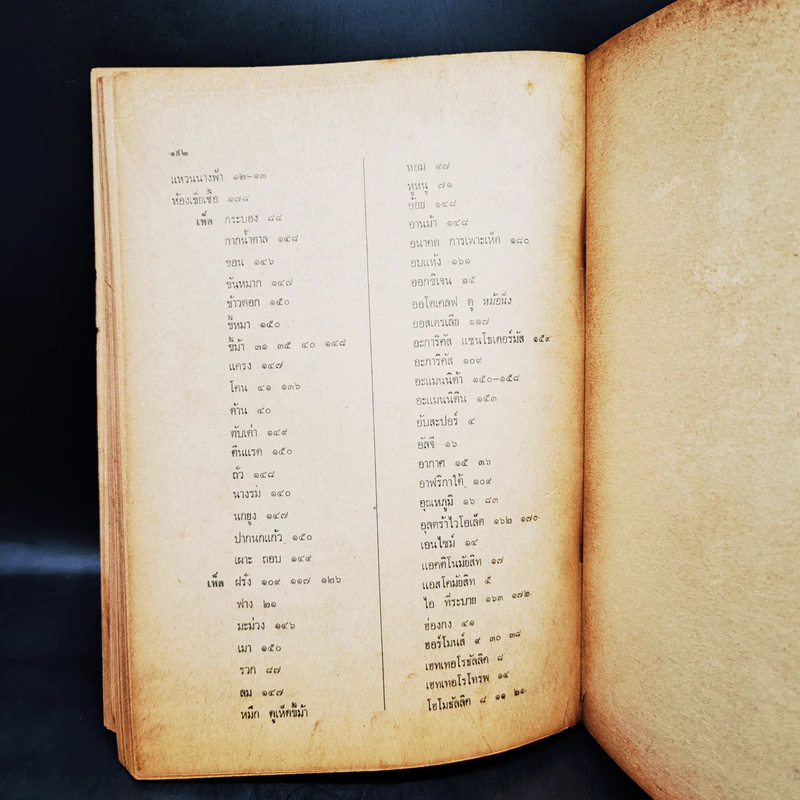 ๑๙๒
แหวนนางฟ้า ๑๒-๑๓
ห้องเขี่ยเชื้อ ๑๗๘
เห็ด กระบอง ๘๘
กากน้ำตาล ๑๔๘
ขอน ๑๔๖
ขันหมาก ๑๔๗
ข้าวตอก ๑๕๐
ขี้หมา ๑๕๐
ขี้ม้า ๓๑ ๓๕ ๔๐ ๑๔๘
แครง ๑๔๗
โคน ๔๑ ๑๓๖
ด้าน ๔๐
ตับเต่า ๑๔๙
ตีนแรด ๑๕๐
ถั่ว ๑๔๘
นางรม ๑๔๐
นกยูง ๑๔๗
ปากนกแก้ว ๑๕๐
เผาะ ถอบ ๑๔๙
เห็ด ฝรั่ง ๑๐๙ ๑๑๗ ๑๒๖
ฟาง ๒๑
มะม่วง ๑๔๖
เมา ๑๕๐
รวก ๘๗
ลม ๑๔๗
หมึก ดูเห็ดขี้ม้า
หอม ๙๗
หูหนู ๗๑
อ้อย ๑๔๘
อานม้า ๑๔๘
อนาคต การเพาะเห็ด ๑๘๐
อบแห้ง ๑๖๑
ออกซิเจน ๑๕
ออโตเคลฟ ดู หม้อนึ่ง
ออสเตรเลีย ๑๑๗
อะการิคัส แซนโธเดอร์มัส ๑๕๙
อะการิคัส ๑๐๙
อะแมนนิต้า ๑๕๐-๑๕๘
อะแมนนิติน ๑๕๓
อับสะปอร์ ๔
อัลจี ๑๖
อากาศ ๑๕ ๓๖
อาฟริกาใต้ ๑๐๙
อุณหภูมิ ๑๖ ๘๓
อุลตร้าไวโอเล็ต ๑๖๒ ๑๗๐
เอนไซม์ ๑๔
แอคติโนมัยสิท ๑๗
แอสโคมัยสิท ๕
ไอ ที่ระบาย ๑๖๓ ๑๗๒
ฮ่องกง ๔๑
ฮอร์โมนส์ ๙ ๓๐ ๓๘
เฮทเทอโรธัลลิค ๘
เฮทเทอโรโทรพ ๑๔
โฮโมธัลลิค ๘ ๑๑ ๒๑